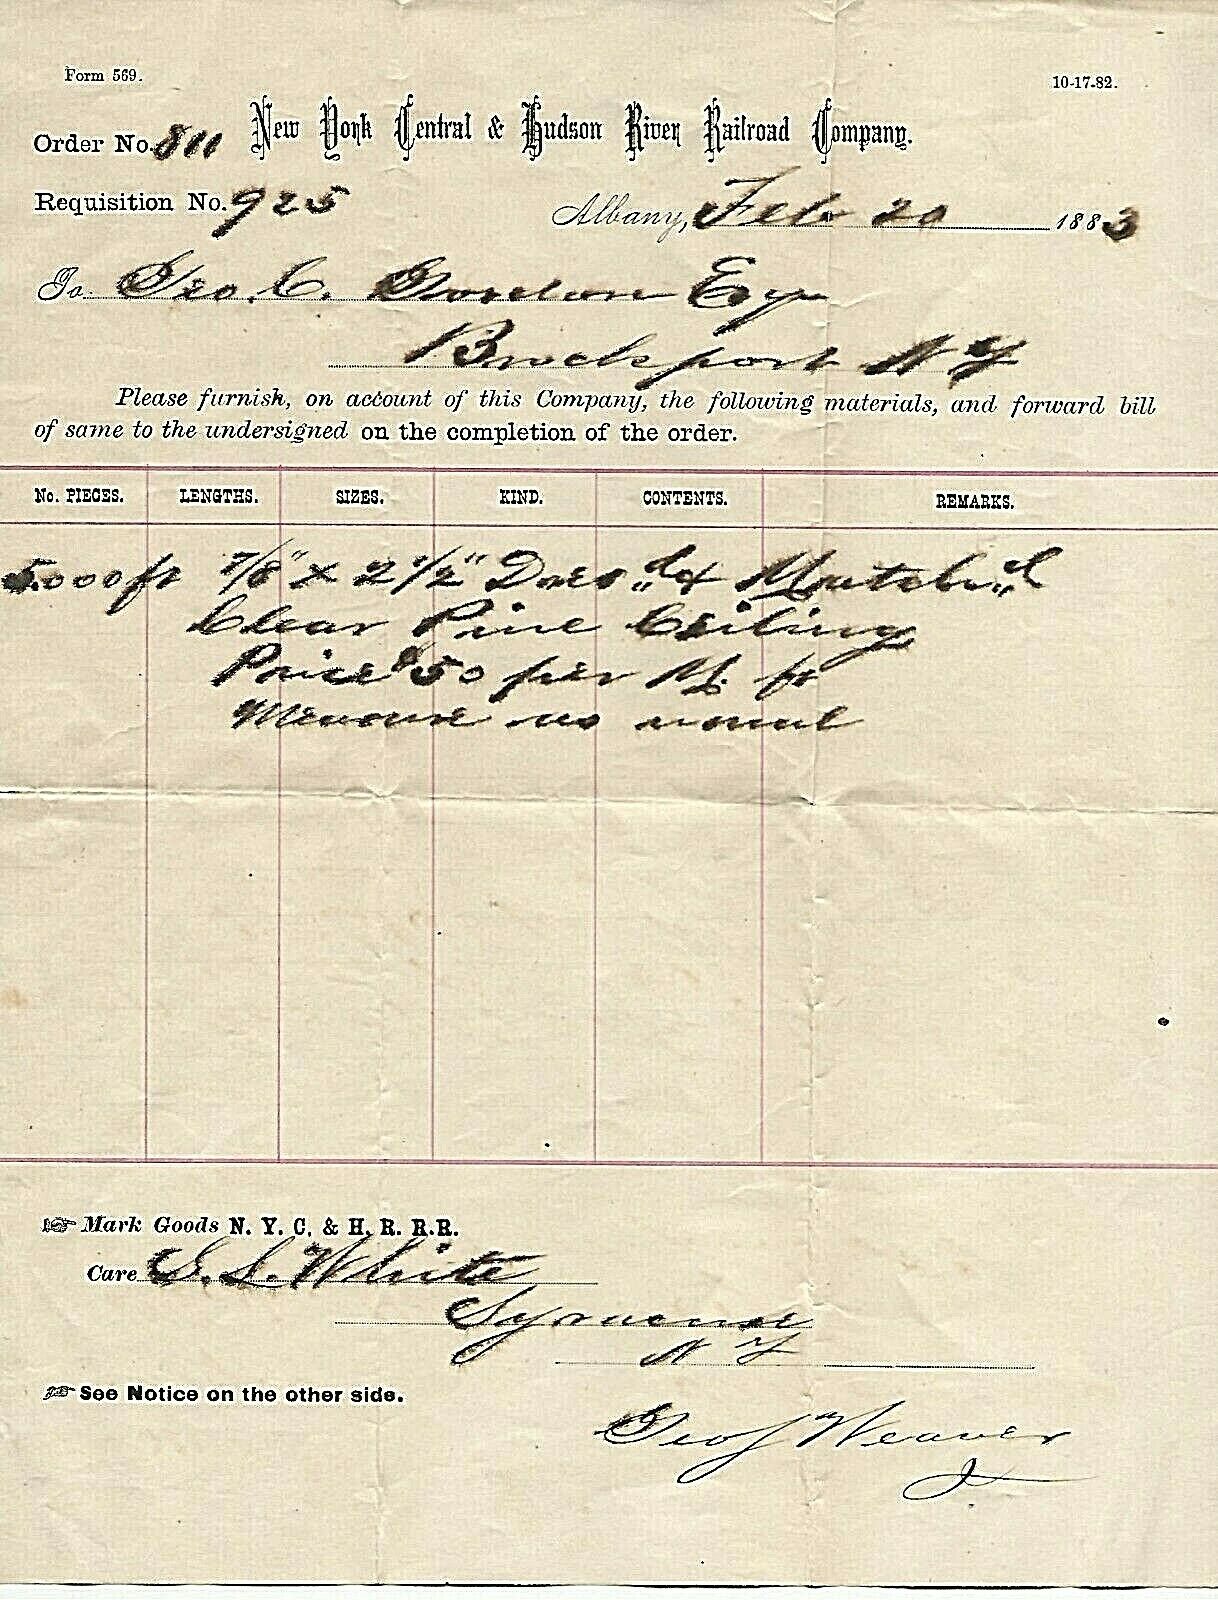 Form 569.
10-17-82.
Order No. 811
New York Central & Hudson River Railroad Company.
Requisition No. 925
Albany, Feb 20 1883
To Geo. C. Gordon Esq
Brockport N Y
Please furnish, on account of this Company, the following materials, and forward bill
of same to the undersigned on the completion of the order.
No. PIECES. LENGTHS. SIZES. KIND. CONTENTS. REMARKS.
5000 ft 7/8" x 2 1/2" Dres"d & Match"d
Clear Pine Ceiling
Price $50 per M. ft
Measure as usual
Mark Goods N. Y. C. & H. R. R.R.
Care S. L. White
Syracuse
N Y
See Notice on the other side.
Geo J Weaver